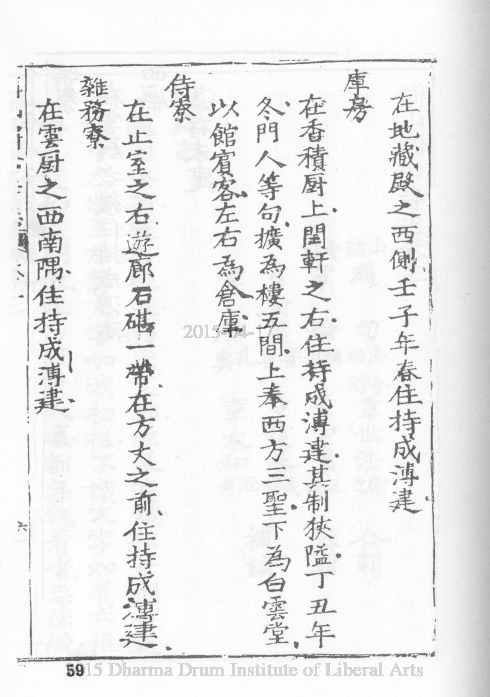 在地藏殿之西側壬子年春住持成漙建
庫房
在香積厨上里軒之右住持成漙建其制狹隘丁丑年
冬門人等句擴為樓五間上奉西方三聖下為白雲堂
以館賓客左右為倉庫
侍寮
在止室之右遊廊石磋一帶在方丈之前住持成漙建
雜務寮
在雲厨之西南隅住持成漙建
六
59
2015 Dharma Drum Institute of Liberal Arts